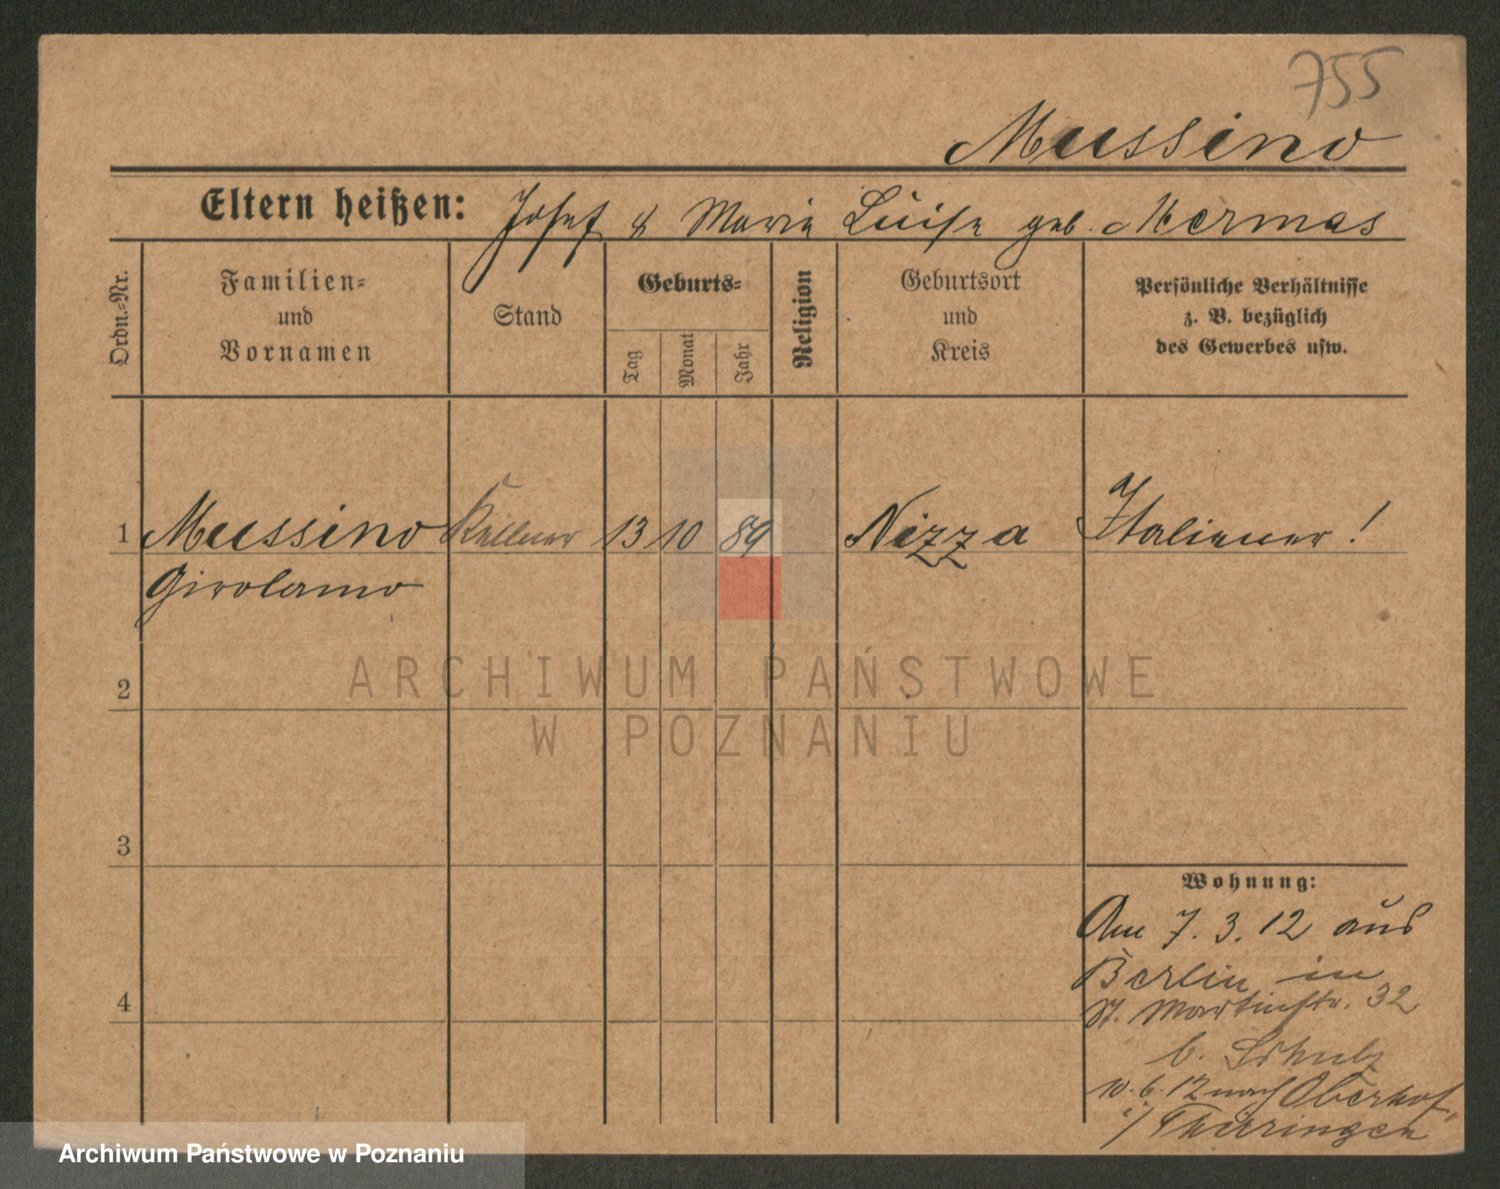 755
Mussino
Eltern heißen: Josef & Maria Luise geb. Mermas
Ordn.-Nr.
Familien-
und
Vornamen
Stand
Geburts-
Tag
Monat
Jahr
Religion
Geburtsort
und
Kreis
Persönliche Verhältnisse
z. B. bezüglich
des Gewerbes usw.
1 Mussino Kellner 13 10 89 Nizza Italiener!
Girolamo
ARCHIWUM PAŃSTWOWE
W POZNANIU
2
3
Wohnung:
Am 7. 3. 12 aus
Berlin in
4
St. Martinstr. 32
b. Schulz
10. 6. 12 nach Oberhof
i/ Thüringen
Archiwum Państwowe w Poznaniu